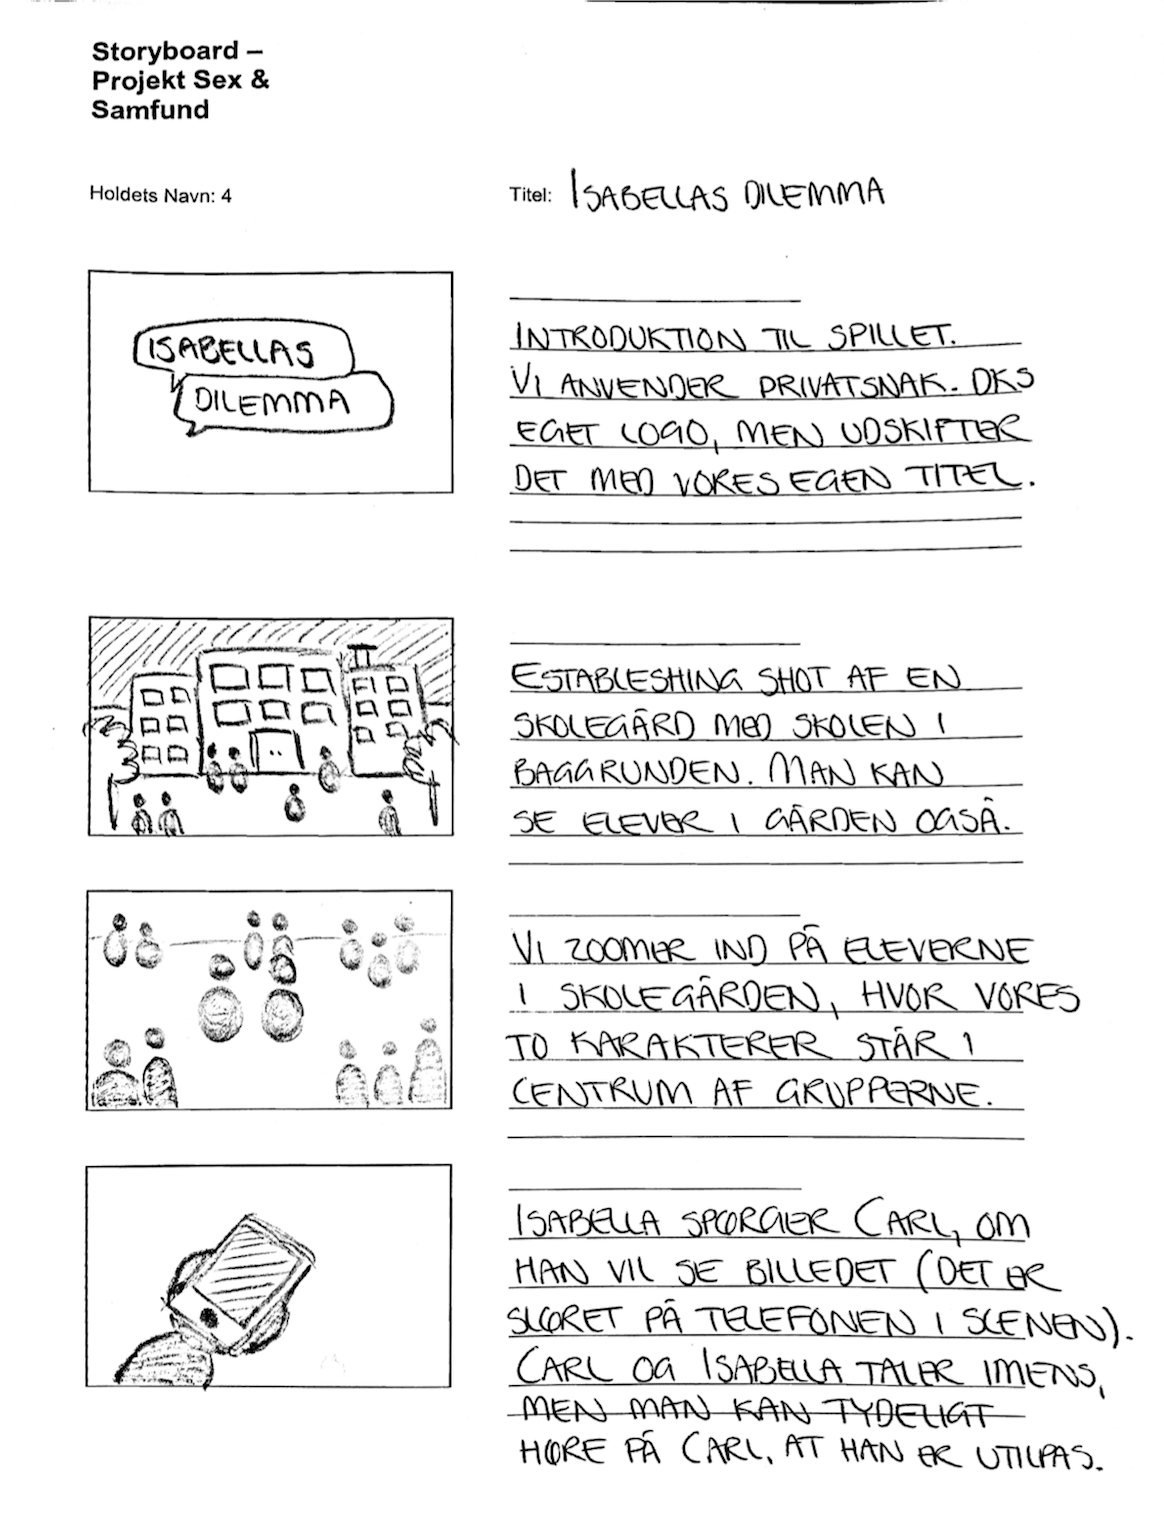 Storyboard –
Projekt Sex &
Samfund
Holdets Navn: 4
Titel: ISABELLAS DILEMMA
ISABELLAS
DILEMMA
INTRODUKTION TIL SPILLET.
VI ANVENDER PRIVATSNAK.DKS
EGET LOGO, MEN UDSKIFTER
DET MED VORES EGEN TITEL.
ESTABLESHING SHOT AF EN
SKOLEGÅRD MED SKOLEN I
BAGGRUNDEN. MAN KAN
SE ELEVER I GÅRDEN OGSÅ.
VI ZOOMER IND PÅ ELEVERNE
I SKOLEGÅRDEN, HVOR VORES
TO KARAKTERER STÅR I
CENTRUM AF GRUPPERNE.
ISABELLA SPØRGER CARL, OM
HAN VIL SE BILLEDET (DET ER
SLØRET PÅ TELEFONEN I SCENEN).
CARL OG ISABELLA TALER IMENS,
MEN MAN KAN TYDELIGT
HØRE PÅ CARL, AT HAN ER UTILPAS.